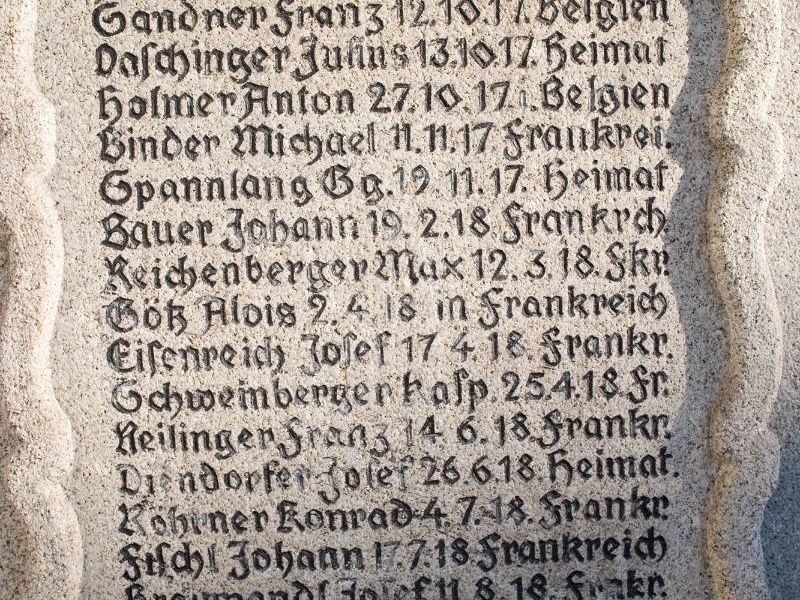 Sandner Franz 12.10.17. Belgien
Daschinger Julius 13.10.17. Heimat
Holmer Anton 27.10.17. i. Belgien
Binder Michael 11.11.17. Frankrei.
Spannlang Gg. 19.11.17. Heimat
Bauer Johann 19. 2.18. Frankrch
Reichenberger Max 12. 3.18. Fkr.
Götz Alois 2. 4. 18. in Frankreich
Eisenreich Josef 17 4. 18. Frankr.
Schweinberger Kasp. 25.4.18 Fr.
Reilinger Franz 14 6.18. Frankr.
Diendorfer Josef 26 6.18. Heimat.
Röhrner Konrad 4. 7.18. Frankr.
Fischl Johann 17.7.18 Frankreich
Josef 11. 8. 18. Frankr.